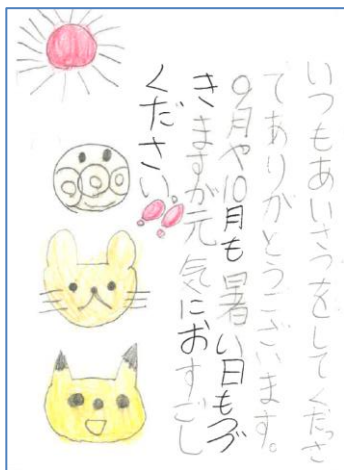 いつもあいさつをしてくださっ
てありがとうございます。
9月や10月も暑い日もつづ
きますが元気におすごし
ください!!